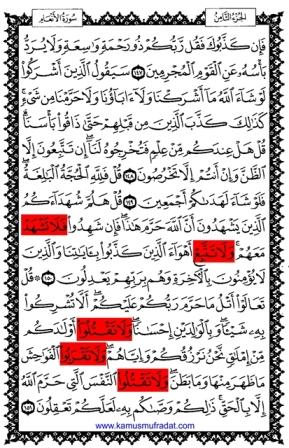 الجزء الثامن سورة الأنعام
فَإِن كَذَّبُوكَ فَقُل رَّبُّكُمْ ذُو رَحْمَةٍ وَٰسِعَةٍ وَلَا يُرَدُّ
بَأْسُهُۥ عَنِ ٱلْقَوْمِ ٱلْمُجْرِمِينَ ١٤٧ سَيَقُولُ ٱلَّذِينَ أَشْرَكُوا۟
لَوْ شَآءَ ٱللَّهُ مَآ أَشْرَكْنَا وَلَآ ءَابَآؤُنَا وَلَا حَرَّمْنَا مِن شَىْءٍ
كَذَٰلِكَ كَذَّبَ ٱلَّذِينَ مِن قَبْلِهِمْ حَتَّىٰ ذَاقُوا۟ بَأْسَنَا
قُلْ هَلْ عِندَكُم مِّنْ عِلْمٍ فَتُخْرِجُوهُ لَنَآ إِن تَتَّبِعُونَ إِلَّا
ٱلظَّنَّ وَإِنْ أَنتُمْ إِلَّا تَخْرُصُونَ ١٤٨ قُلْ فَلِلَّهِ ٱلْحُجَّةُ ٱلْبَٰلِغَةُ
فَلَوْ شَآءَ لَهَدَىٰكُمْ أَجْمَعِينَ ١٤٩ قُلْ هَلُمَّ شُهَدَآءَكُمُ
ٱلَّذِينَ يَشْهَدُونَ أَنَّ ٱللَّهَ حَرَّمَ هَٰذَا فَإِن شَهِدُوا۟ فَلَا تَشْهَدْ
مَعَهُمْ وَلَا تَتَّبِعْ أَهْوَآءَ ٱلَّذِينَ كَذَّبُوا۟ بِـَٔايَٰتِنَا وَٱلَّذِينَ
لَا يُؤْمِنُونَ بِٱلْـَٔاخِرَةِ وَهُم بِرَبِّهِمْ يَعْدِلُونَ ١٥٠ ۞ قُلْ
تَعَالَوْا۟ أَتْلُ مَا حَرَّمَ رَبُّكُمْ عَلَيْكُمْ أَلَّا تُشْرِكُوا۟
بِهِۦ شَيْـًٔا وَبِٱلْوَٰلِدَيْنِ إِحْسَٰنًا وَلَا تَقْتُلُوٓا۟ أَوْلَٰدَكُم
مِّنْ إِمْلَٰقٍ نَّحْنُ نَرْزُقُكُمْ وَإِيَّاهُمْ وَلَا تَقْرَبُوا۟ ٱلْفَوَٰحِشَ
مَا ظَهَرَ مِنْهَا وَمَا بَطَنَ وَلَا تَقْتُلُوا۟ ٱلنَّفْسَ ٱلَّتِى حَرَّمَ ٱللَّهُ
إِلَّا بِٱلْحَقِّ ذَٰلِكُمْ وَصَّىٰكُم بِهِۦ لَعَلَّكُمْ تَعْقِلُونَ ١٥١
www.kamusmufradat.com